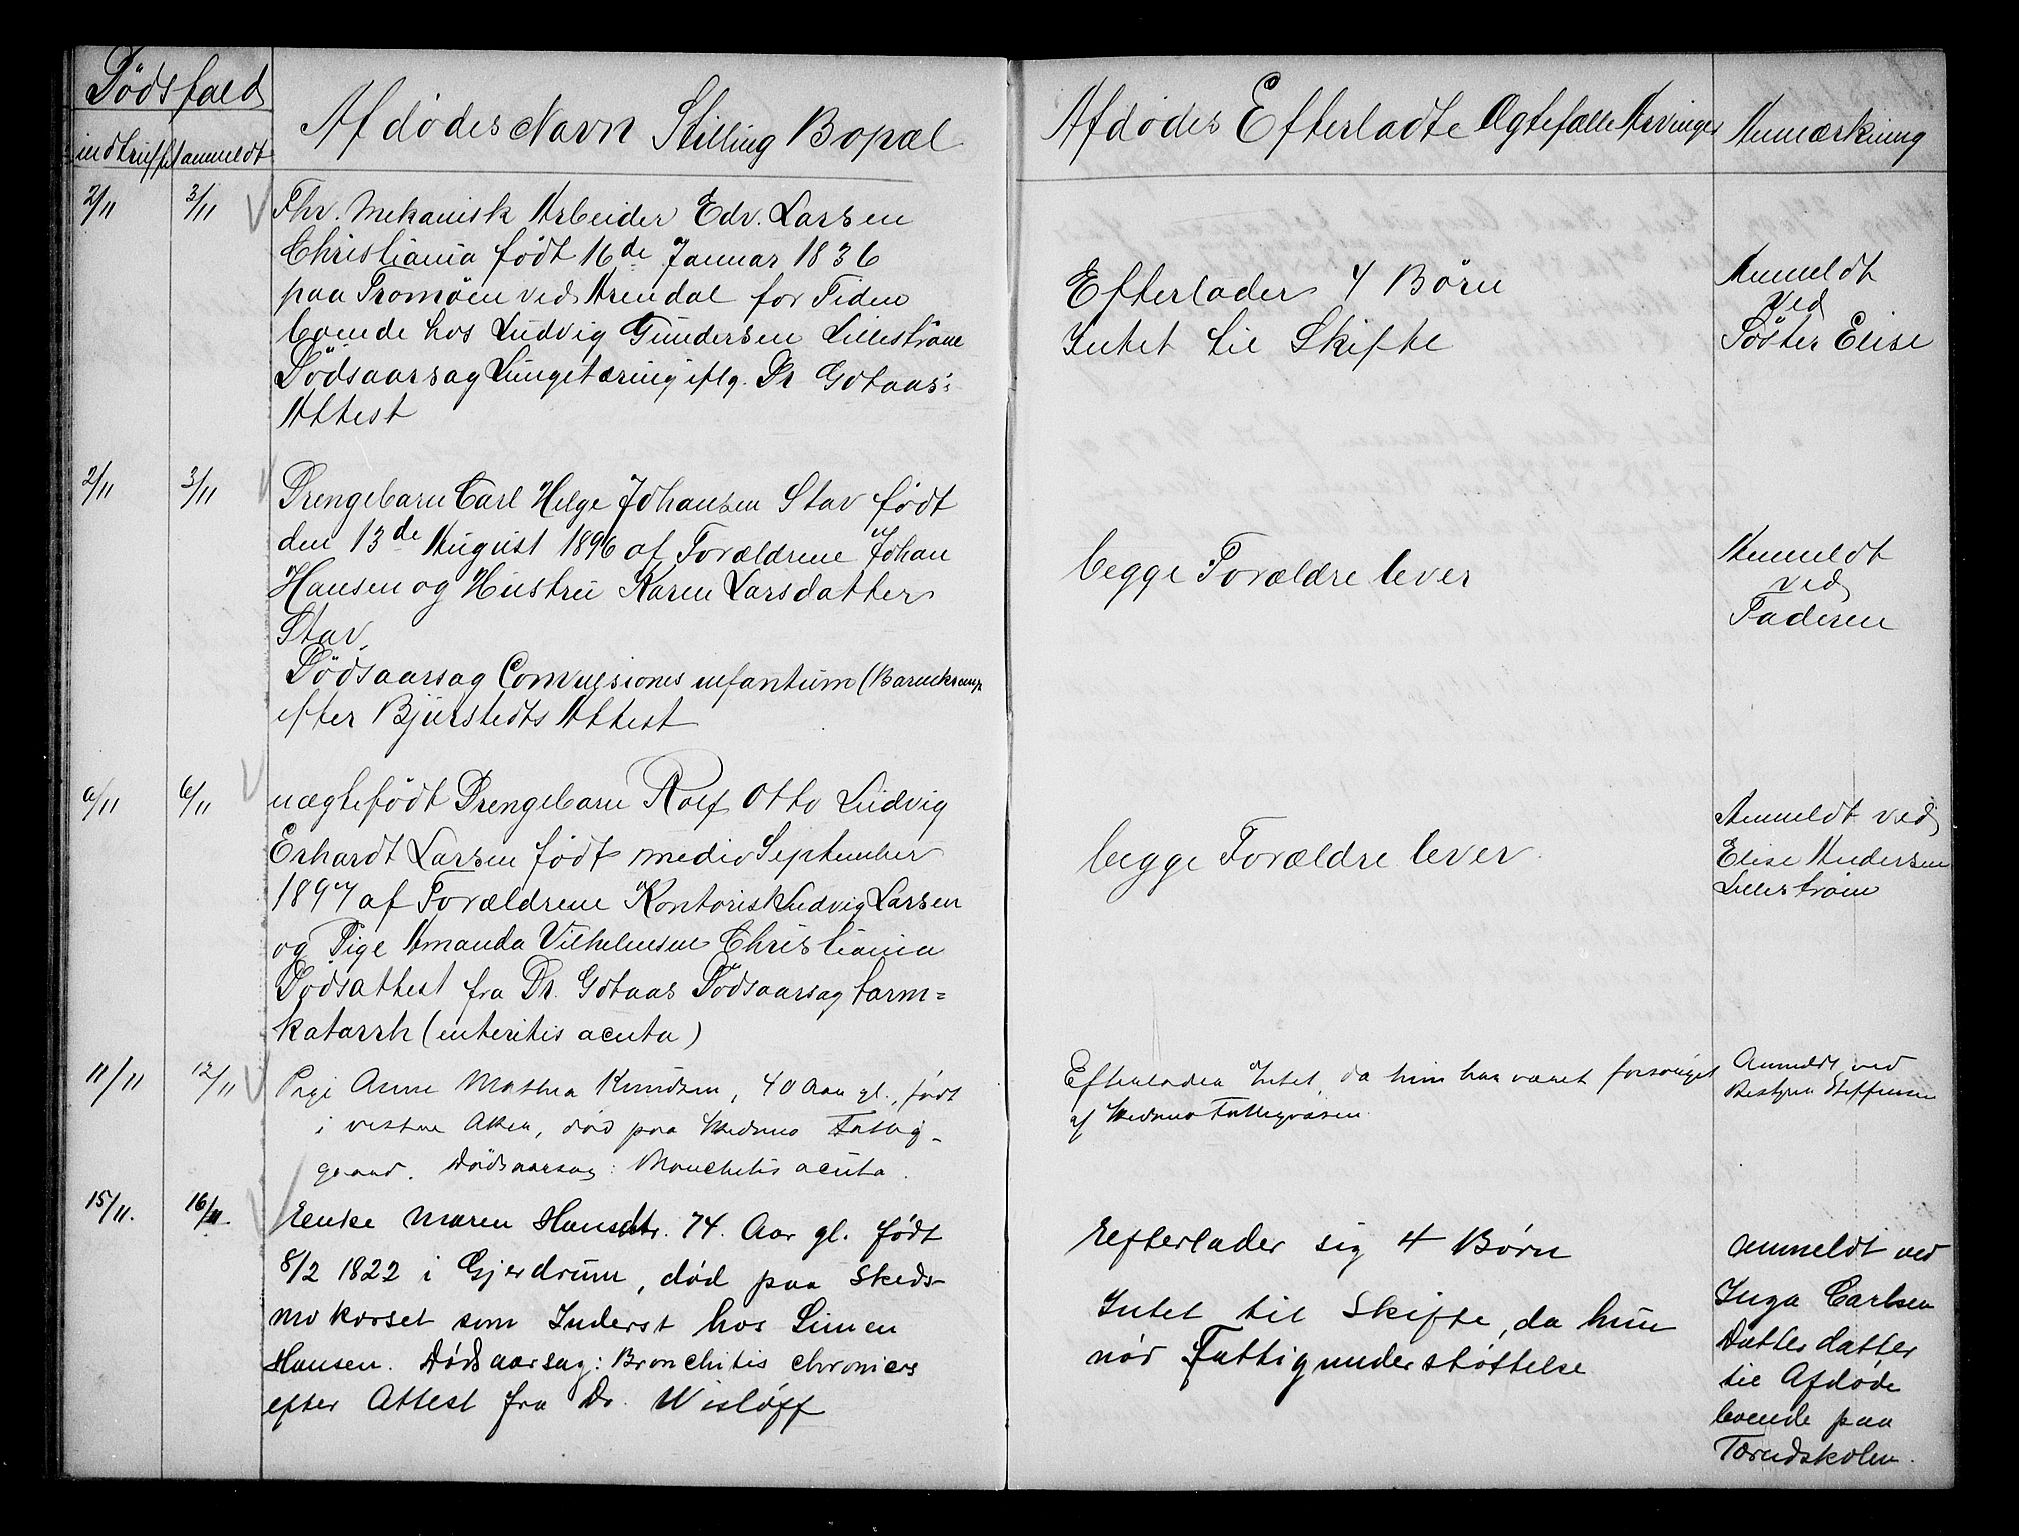 Dödsfald
indtruffet anmeldt
Afdödes Navn Stilling Bopæl
2/11 3/11 Fhv. Mekanisk Arbeider Edv. Larsen
Christiania født 16de Januar 1836
paa Tromöen ved Arendal for Tiden
boende hos Ludvig Gundersen Lilleström
Dödsaarsag Lungetæring iflg. Dr Gotaas's
Attest
2/11 3/11 Drengebarn Carl Helge Johansen Stav født
den 13de August 1896 af Forældrene Johan
Hansen og Hustru Karen Larsdatter
Stav
Dödsaarsag Convulsiones infantum (Barnekramp
efter Bjurstedts Attest
6/11 6/11 uægtefödt Drengebarn Rolf Otto Ludvig
Erhardt Larsen födt medio September
1897 af Forældrene Kontorist Ludvig Larsen
og Pige Amanda Vilhelmsen Christiania
Dödsattest fra Dr. Gotaas Dödsaarsag tarm=
katarrh (enteritis acuta)
11/11 12/11 Pige Anne Mathea Knudsen, 40 Aar gl., født
i vestre Aker, død paa Skedsmo Fattig-
gaard. Dødsaarsag: Bronchitis acuta.
15/11. 16/11. Enke Maren Hansdtr. 74 Aar gl. født
8/2 1822 i Gjerdrum, død paa Skeds-
mokorset som Inderst hos Simen
Hansen. Dødsaarsag: Bronchitis chronica
efter Attest fra Dr. Wisløff
Afdödes Efterladte Ægtefælle Arvinger
Efterlader 4 Börn
Intet til Skifte
begge Forældre lever
begge Forældre lever.
Efterlader Intet, da hun har været forsørget
af Skedsmo Fattigvæsen
Efterlader sig 4 Børn
Intet til Skifte, da hun
nød Fattigunderstøttelse
Anmærkning
Anmeldt
ved
Søster Elise
Anmeldt
ved
Faderen
Anmeldt ved
Elise Andersen
Lillestrøm
Anmeldt ved
Bestyrer Steffensen
anmeldt ved
Inga Carlsen
Datterdatter
til Afdøde
boende paa
Tærudskolen.